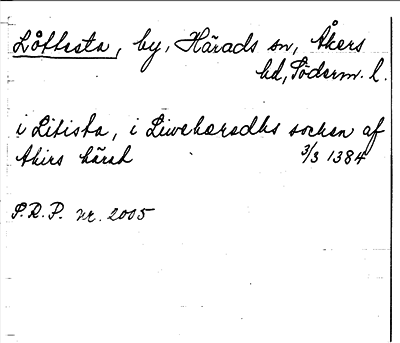 Löfsta, by, Härads sn, Åkers
hd, Söderm. l.
i Litista, i Liwehæradhs socken af
Akirs härat 3/3 1384
S.R.P. nr. 2005